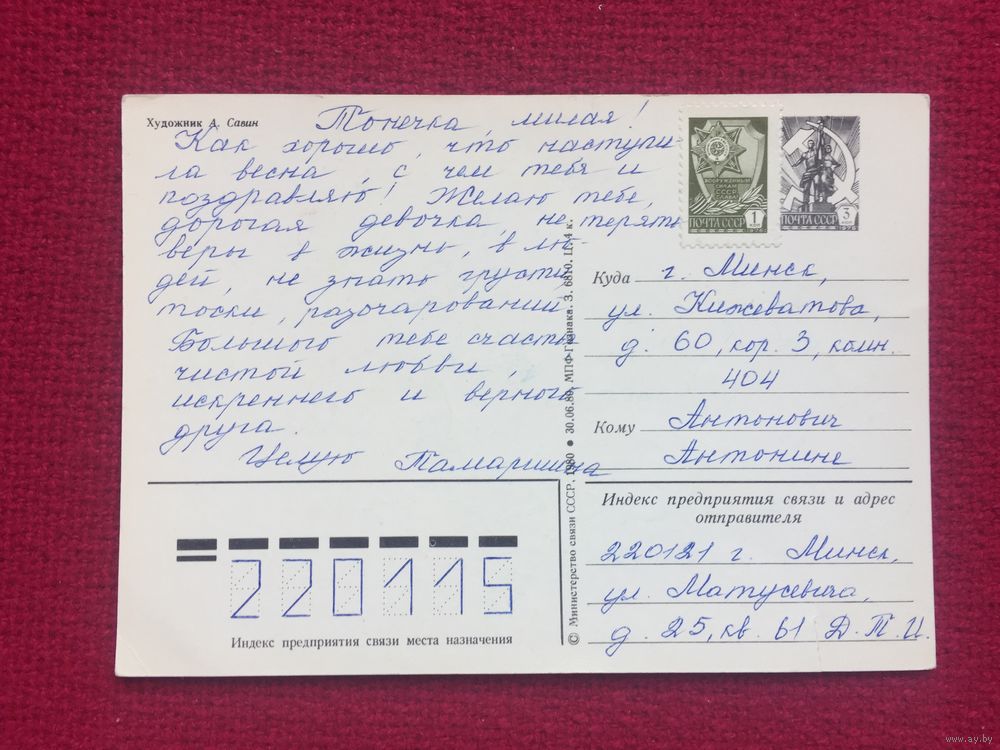 Художник А. Савин
Тонечка, милая!
Как хорошо, что наступи-
ла весна, с чем тебя и
поздравляю! Желаю тебе,
дорогая девочка, не терять
веры в жизнь, в лю-
дей, не знать грусти,
тоски, разочарований.
Большого тебе счастья
чистой любви,
искреннего и верного
друга.
Целую Тамаришна
ВООРУЖЕННЫМ
СИЛАМ
СССР
СЛАВА
ПОЧТА СССР 1
1976
ПОЧТА СССР 3
1976
Куда г. Минск,
ул. Кижеватова,
д. 60, кор. 3, комн.
404
Кому Антонович
Антонине
Индекс предприятия связи и адрес
отправителя
220121 г. Минск,
ул. Матусевича,
д. 25, кв. 61 Д. П. И.
220115
Индекс предприятия связи места назначения
© Министерство связи СССР. 1980 ● 30.06.80. МПФ Гознака. З. 6810. Ц. 4 к.
www.ay.by